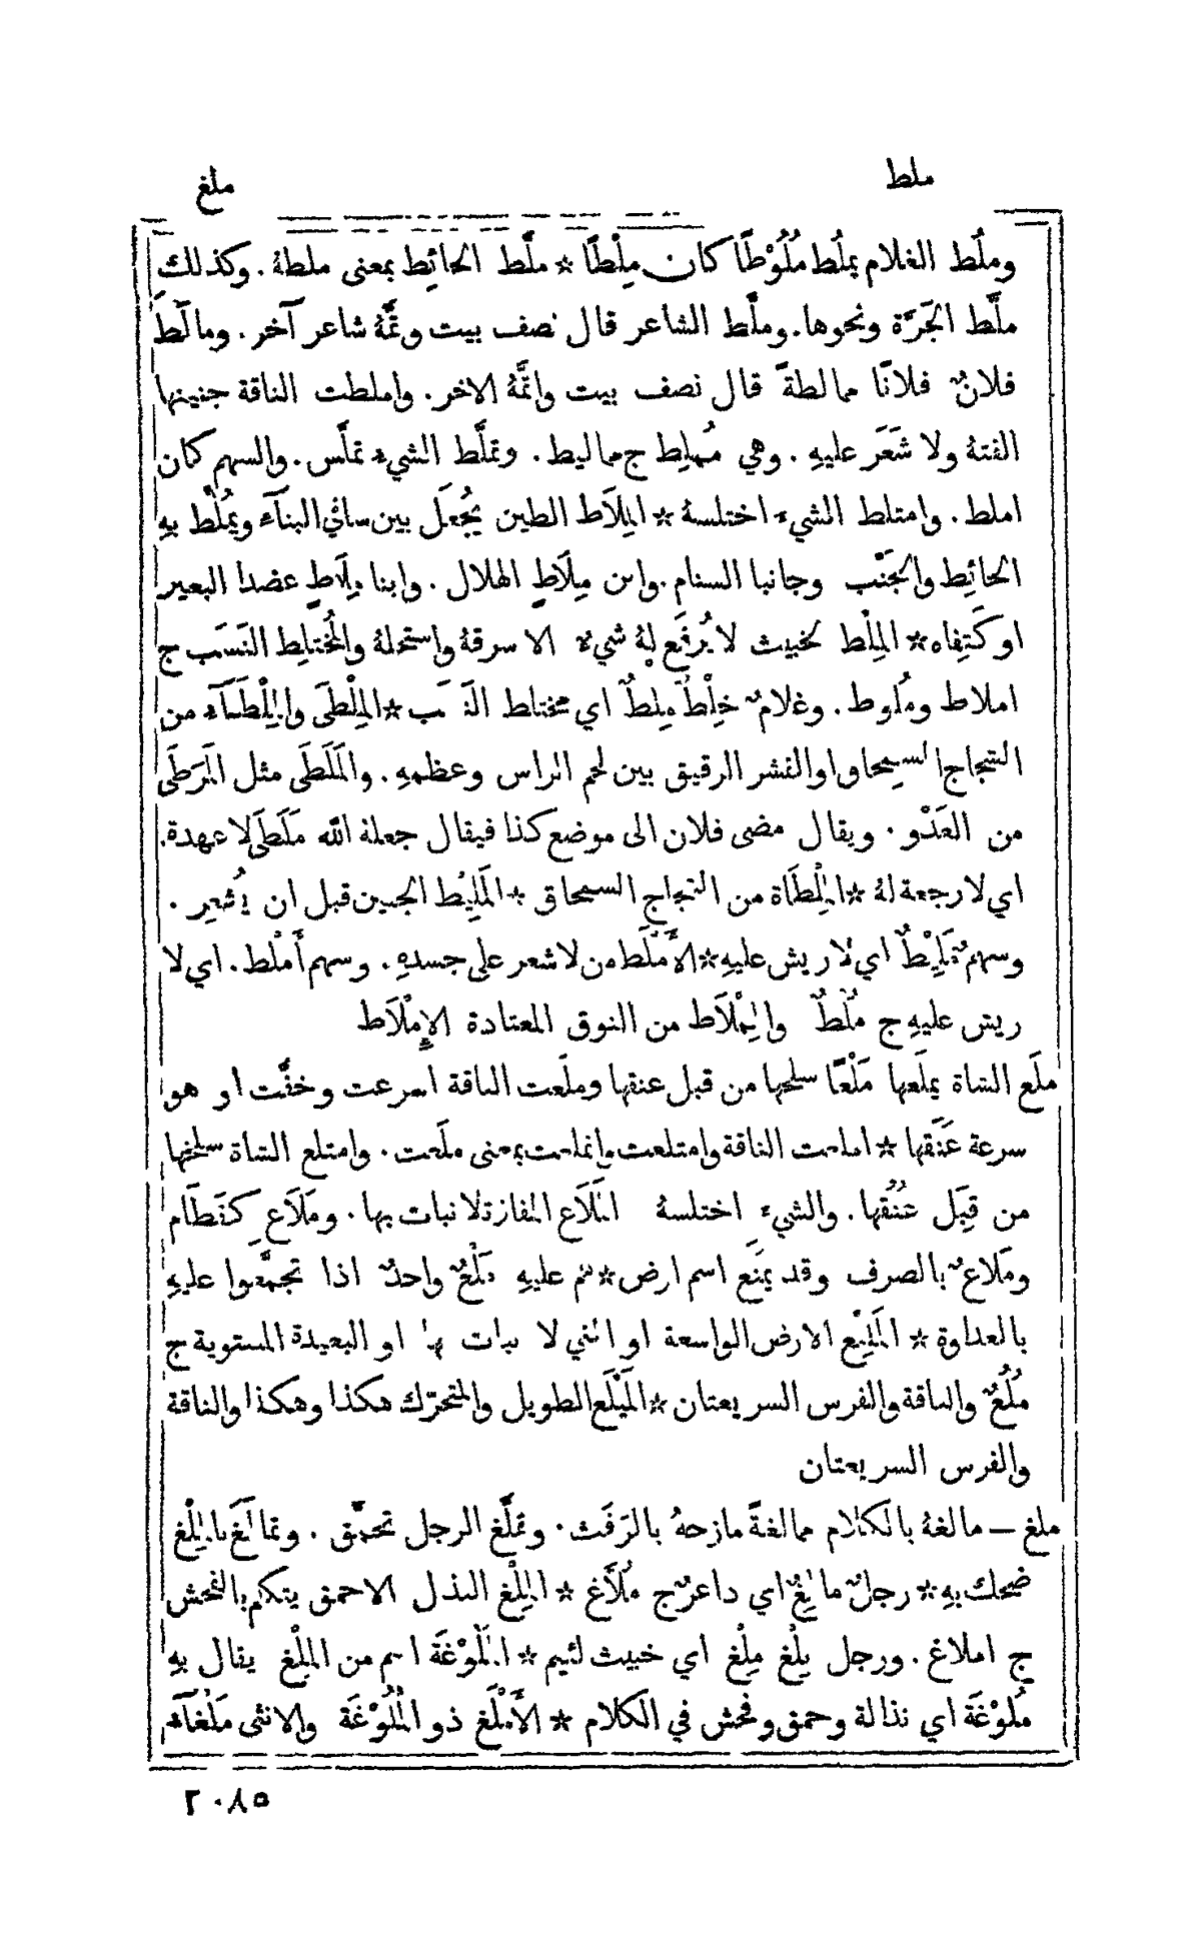 ملط
ملغ
وملُط الغلام يملُط مُلُوْطًا كان مِلْطًا * ملَّط الحائِط بمعنى ملطهُ . وكذلك
ملَّط الجَرَّة ونحوها. وملَّط الشاعر قال نصف بيت وتمَّهُ شاعر آخر . ومالَطَ
فلانٌ فلانًا ممالطةً قال نصف بيت واتمَّهُ الاخر . واملطت الناقة جنينها
القتهُ ولا شَعَر عليهِ . وهي مُملِط ج مماليط . وتملَّط الشيءُ تملَّس . والسهم كان
املط . وامتلط الشيءَ اختلسهُ * المِلَاط الطين يُجْعَل بين سافَي البنآءِ ويُمْلَط بهِ
الحائِط والجَنْب وجانبا السنام . وابن مِلَاطٍ الهلال . وابنا مِلَاطٍ عضدا البعير
او كَتِفاه * المِلْط الخبيث لا يُرفَع لهُ شيءٌ الا سرقهُ واستحلهُ والمُختلِط النَسَب ج
املاط ومُلوط . وغلامٌ خِلْطٌ مِلطٌ اي مختلط النَسَب * المِلْطَى والمِلْطَآء من
الشجاج السمحاق او القشر الرقيق بين لحم الراس وعظمهِ . والمَلَطَى مثل المَرَطَى
من العَدْو . ويقال مضى فلان الى موضع كذا فيقال جعلهُ اللّٰه مَلَطَى لا عهدة .
اي لا رجعة لهُ * المِلْطَاة من الشجاج السمحاق * المَلِيْط الجنين قبل ان يُشعِر .
وسهمٌ مَلِيْطٌ اي لا ريش عليهِ * الأَمْلَط من لا شعر على جسدهِ . وسهم أَمْلط . اي لا
ريش عليهِ ج مُلْطٌ والمِمْلَاط من النوق المعتادة الإِمْلَاط
ملَع الشاة يملَعها مَلْعًا سلخها من قبل عنقها وملَعت الناقة اسرعت وخفَّت او هو
سرعة عَنَقها * املعت الناقة وامتلعت وانملعت بمعنى ملَعت . وامتلع الشاة سلخها
من قِبَل عُنُقها . والشيءَ اختلسهُ المَلَاع المفازة لا نبات بها . ومَلَاعِ كَقَطَامِ
ومَلاعٌ بالصرف وقد يمنَع اسم ارض * هم عليهِ مَلْعٌ واحدٌ اذا تجمَّعوا عليهِ
بالعداوة * المَلِيْع الارض الواسعة او التي لا نبات بها او البعيدة المستوية ج
مُلُعٌ والناقة والفرس السريعتان * المَيْلَع الطويل والمتحرّك هكذا وهكذا والناقة
والفرس السريعتان
ملغ — مالغهُ بالكلام ممالغةً مازحهُ بالرَفَث . وتملَّغ الرجل تحمَّق . وتمالَغ بالمِلْغ
ضحك بهِ * رجلٌ مالِغٌ اي داعرٌ ج مُلَّاغ * المِلْغ النذل الاحمق يتكلم بالفحش
ج املاغ . ورجل بِلْغ مِلْغ اي خبيث لئيم * المُلُوْغَة اسم من المِلْغ يقال بهِ
مُلوْغَة اي نذالة وحمق وفحش في الكلام * الأَمْلَغ ذو المُلُوْغَة والانثى مَلْغآء
٢٠٨٥